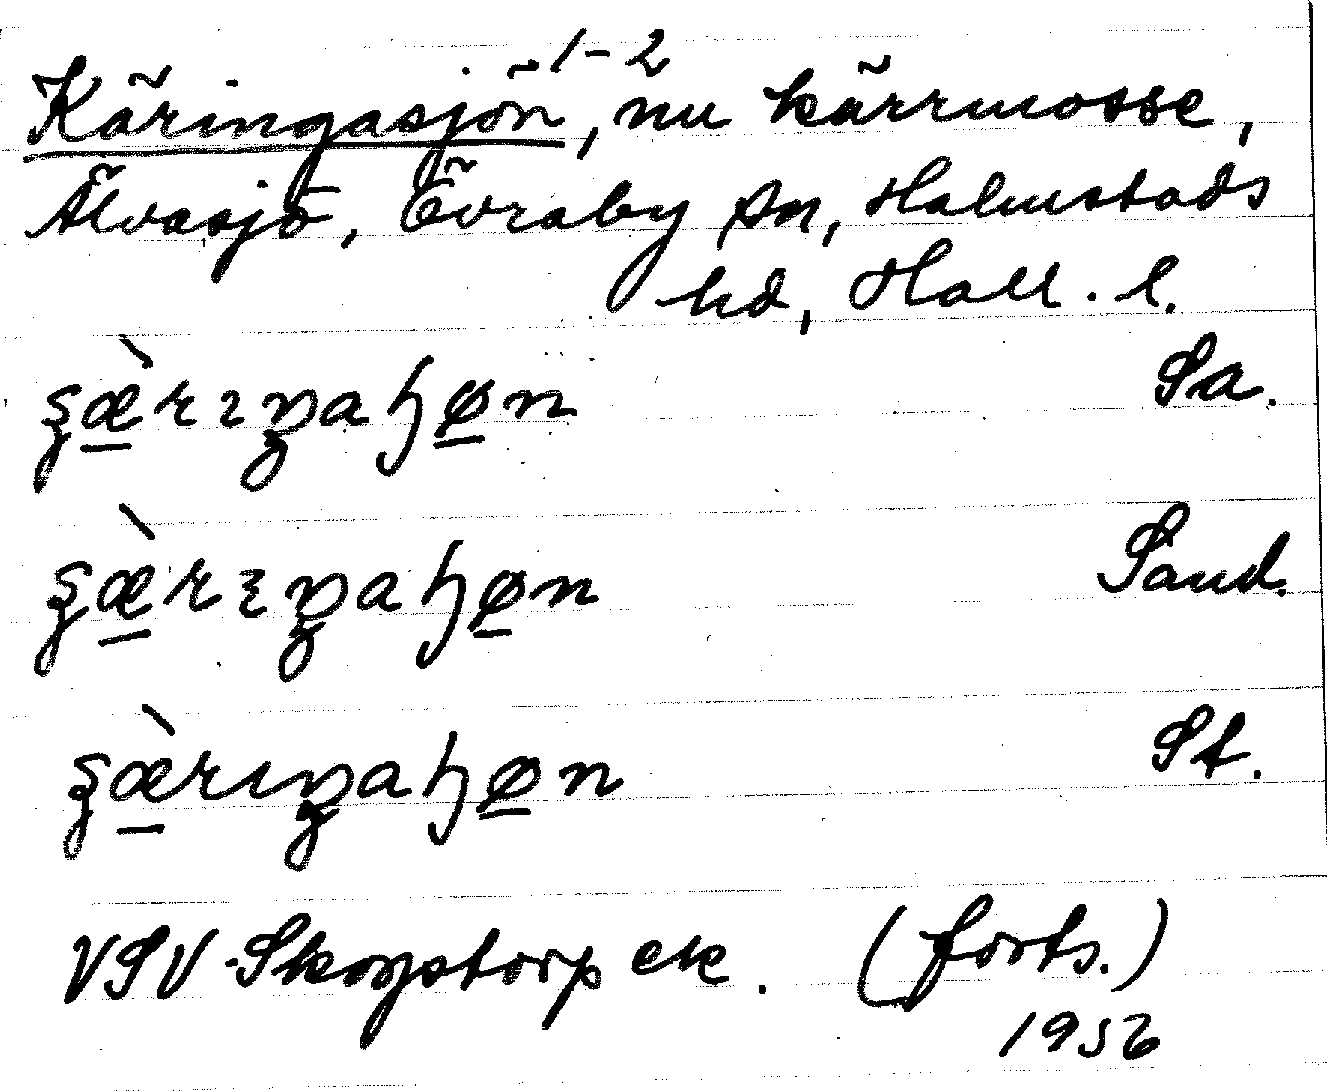 Käringasjön 1-2, nu kärrmosse,
Älvasjö, Övraby sn, Halmstads
hd, Hall. l.
ʂæ̠̀rɪŋahø̠n Sa.
ʂæ̠̀rɛŋahø̠n Sand.
ʂæ̠̀rɪŋahø̠n St.
VSV Skogstorp ek. (forts.)
1956